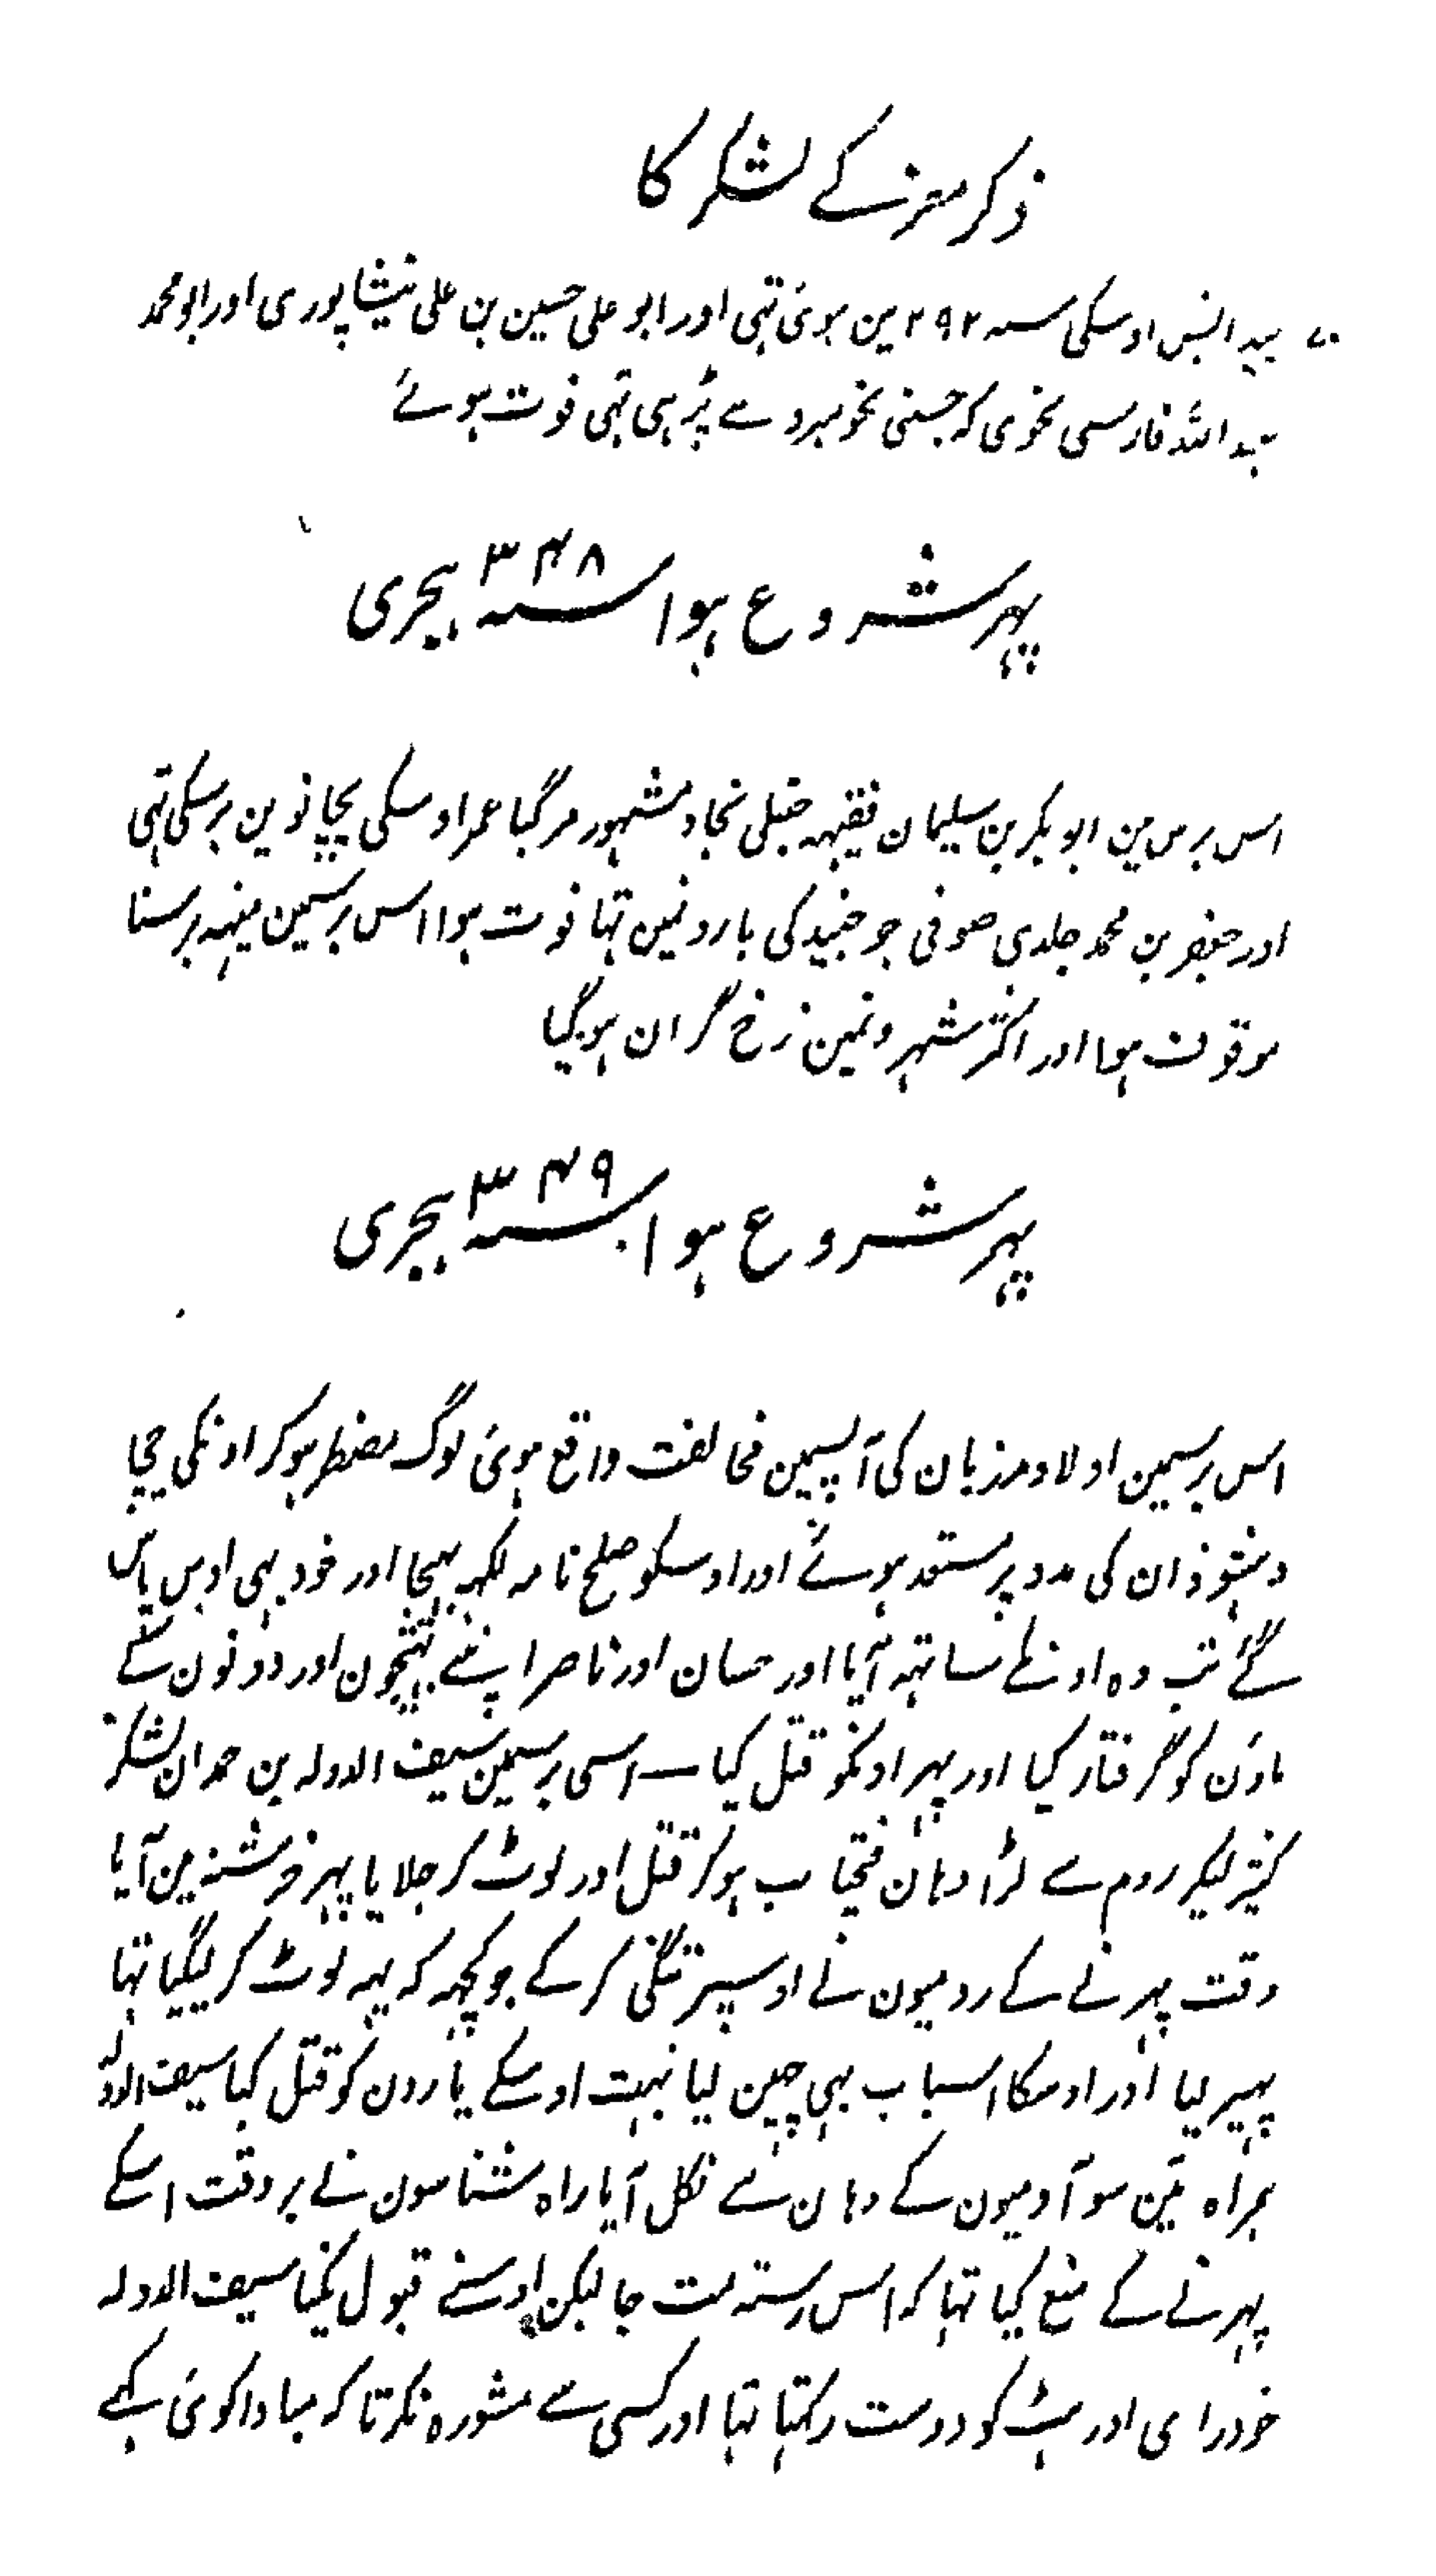 ذکر معز کے لشکر کا
پیدایش اوسکی سنہ ۲۹۲ مین ہوئی تہی اور ابو علی حسین بن علی نیشاپوری اور ابو محمد
عبد اللہ فارسی نحوی کہ جسنی نحو مبرد سے پڑہی تہی فوت ہوئے
پہر شروع ہوا سنہ ۳۴۸ ہجری
اس برس مین ابو بکر بن سلیمان فقیہہ حنبلی نجاد مشہور مر گیا عمر اوسکی پچانوین برسکی تہی
اور جعفر بن محمد جلدی صوفی جو جنید کی یارونمین تہا فوت ہوا اس برسمین مینہہ برسنا
موقوف ہوا اور اکثر شہرونمین نرخ گران ہوگیا
پہر شروع ہوا سنہ ۳۴۹ ہجری
اس برسمین اولاد مرزبان کی آپسمین مخالفت واقع ہوئی لوگ مضطر ہوکر اونکی چچا
وہشوذان کی مدد پر مستعد ہوئے اور اوسکو صلح نامہ لکہہ بہیجا اور خود بہی اوس پاس
گئے تب وہ اونکے ساتہہ آیا اور حسان اور ناصر اپنے بہتیجون اور دونون کے
ماؤن کو گرفتار کیا اور پہر اونکو قتل کیا — اسی برسمین سیف الدولہ بن حمدان لشکر
کثیر لیکر روم سے لڑا وہان فتحیاب ہوکر قتل اور لوٹ کر جلایا پہر خرشنہ مین آیا
وقت پہرنے کے رومیون نے اوسپر تنگی کر کے جو کچہہ کہ یہہ لوٹ کر لیگیا تہا
پہیر لیا اور اوسکا اسباب بہی چہین لیا بہت اوسکے یارون کو قتل کیا سیف الدولہ
ہمراہ تین سو آدمیون کے وہان سے نکل آیا راہ شناسون نے بر وقت اسکے
پہرنے کے منع کیا تہا کہ اس رستہ مت جا لیکن اوسنے قبول نکیا سیف الدولہ
خود رای اور ہٹ کو دوست رکہتا تہا اور کسی سے مشورہ نکرتا کہ مبادا کوئی کہے